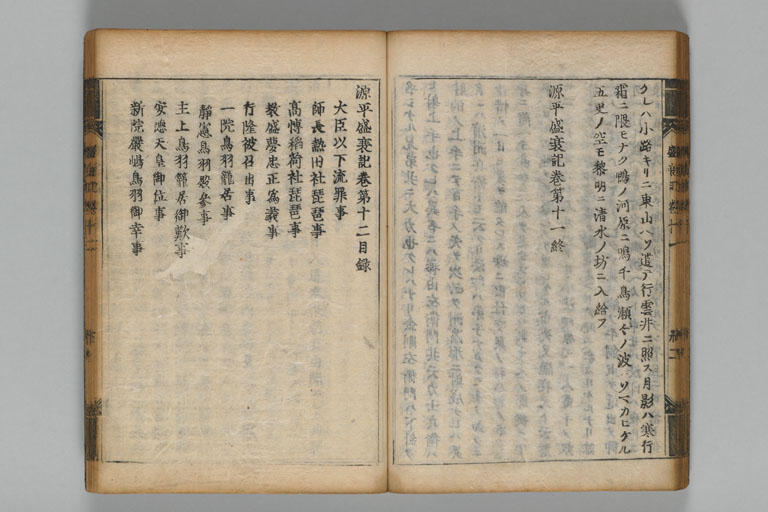 クレハ小路キリニ東山ハツ遣テ行雲井ニ照ス月影ハ寒行
霜ニ隈モナク鴨ノ河原ニ鳴千鳥瀬々ノ波
五更ノ空モ黎明ニ清水ノ坊ニ入給フ
源平盛衰記巻第十一終
源平盛衰記巻第十二目録
大臣以下流罪事
師長熱田社琵琶事
高博稲荷社琵琶事
教盛夢忠正為義事
行隆被召出事
一院鳥羽籠居事
静憲鳥羽殿参事
主上鳥羽籠居御歎事
安徳天皇御位事
新院厳嶋鳥羽御幸事